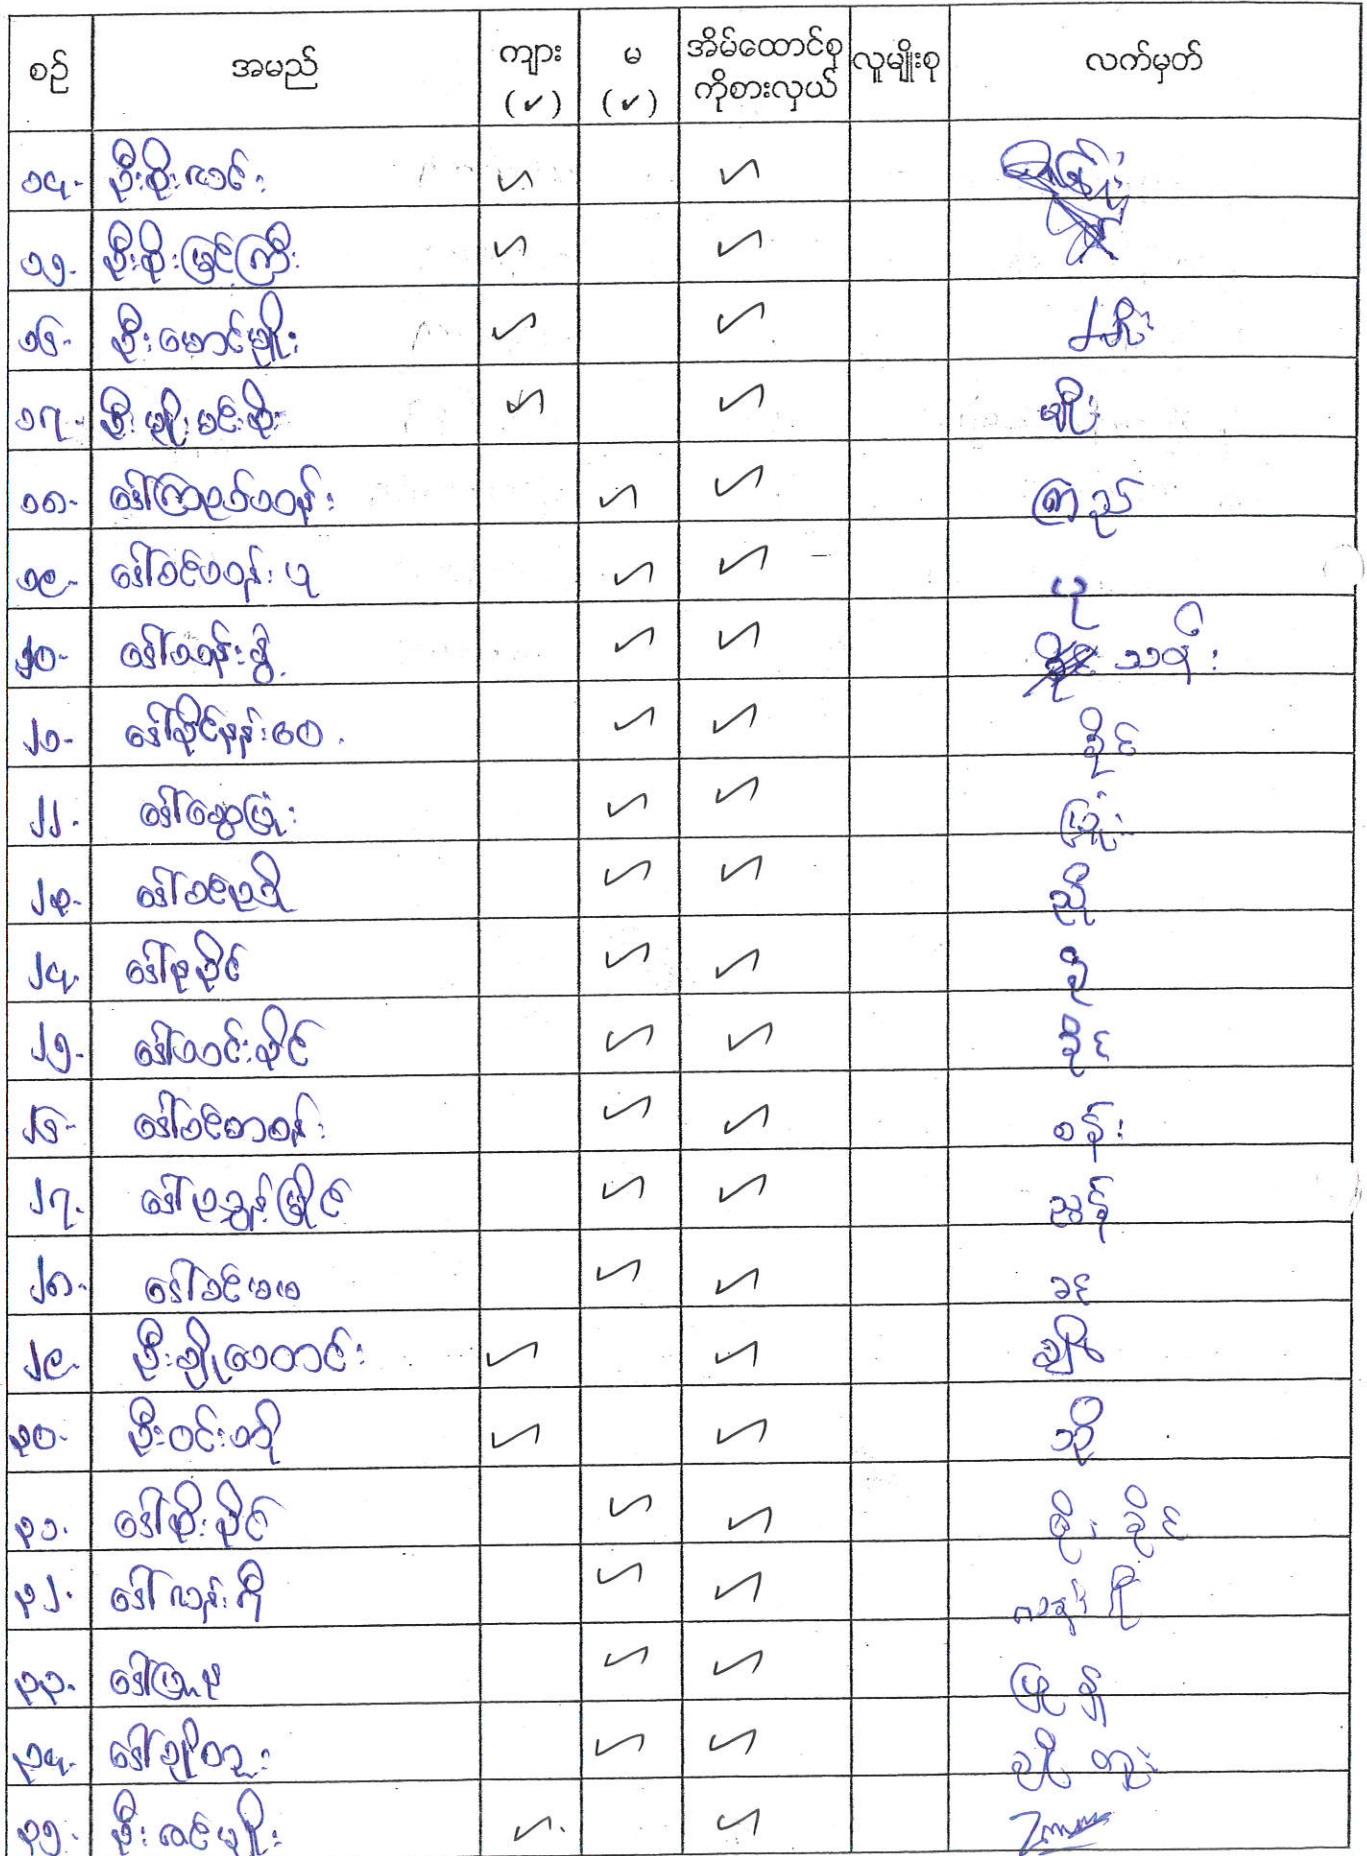 စဉ် အမည် ကျား (✓) မ (✓) အိမ်ထောင်စု ကိုစားလှယ် လူမျိုးစု လက်မှတ်
၁၄- ဦးစိုးလင်း ✓ ✓
၁၅- ဦးစိုးမြင့်ကြီး ✓ ✓
၁၆- ဦးမောင်မျိုး ✓ ✓
၁၇- ဦးမျိုးမင်းစိုး ✓ ✓ မျိုး
၁၈- ဒေါ်ကြည်ဝန်း ✓ ✓ ကြည်
၁၉- ဒေါ်ခင်သန်းယု ✓ ✓ ယု
၂၀- ဒေါ်သန်းနွဲ့ ✓ ✓ သန်း
၂၁- ဒေါ်ခိုင်နှန်းဝေ ✓ ✓ ခိုင်
၂၂- ဒေါ်ဆွေပြုံး ✓ ✓ ပြုံး
၂၃- ဒေါ်ခင်ညို ✓ ✓ ညို
၂၄- ဒေါ်စုခိုင် ✓ ✓
၂၅- ဒေါ်သင်းခိုင် ✓ ✓ ခိုင်
၂၆- ဒေါ်ခင်စာစန်း ✓ ✓ စန်း
၂၇- ဒေါ်ညွန့်မြိုင် ✓ ✓ ညွန့်
၂၈- ဒေါ်ခင်မမ ✓ ✓ ခင်
၂၉- ဦးချိုတေတင်း ✓ ✓ ချို
၃၀- ဦးဝင်းဘို ✓ ✓ ဘို
၃၁- ဒေါ်စိုးခိုင် ✓ ✓ စိုး ခိုင်
၃၂- ဒေါ်လှန်းရီ ✓ ✓
၃၃- ဒေါ်ဖြူနု ✓ ✓
၃၄- ဒေါ်ချိုတူး ✓ ✓ ချို တူး
၃၅- ဦးဇင်မျိုး ✓ ✓